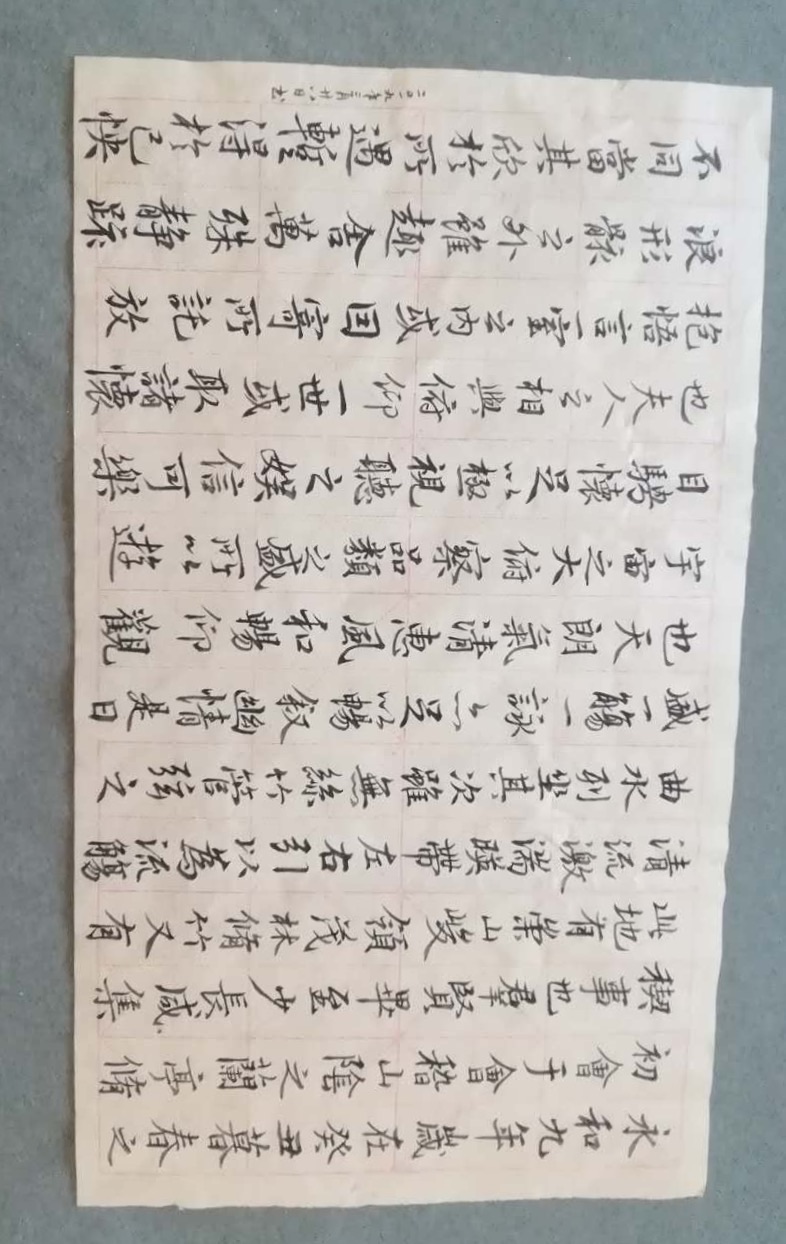 永和九年歲在癸丑暮春之
初會于會稽山陰之蘭亭脩
稧事也羣賢畢至少長咸集
此地有崇山峻領茂林脩竹又有
清流激湍暎帶左右引以為流觴
曲水列坐其次雖無絲竹管弦之
盛一觴一詠亦足以暢叙幽情是日
也天朗氣清惠風和暢仰觀
宇宙之大俯察品類之盛所以遊
目騁懷足以極視聽之娛信可樂
也夫人之相與俯仰一世或取諸懷
抱悟言一室之内或因寄所託放
浪形骸之外雖趣舍萬殊靜躁
不同當其欣於所遇暫得於己快
二〇一九年三月廿八日书